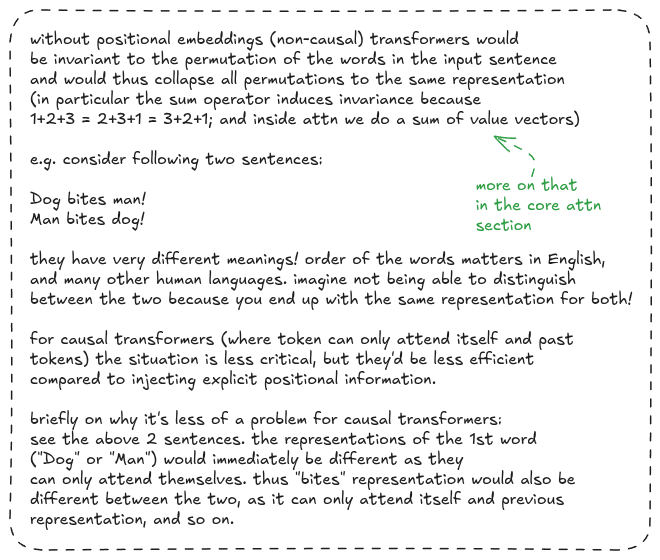 without positional embeddings (non-causal) transformers would
be invariant to the permutation of the words in the input sentence
and would thus collapse all permutations to the same representation
(in particular the sum operator induces invariance because
1+2+3 = 2+3+1 = 3+2+1; and inside attn we do a sum of value vectors)
more on that
in the core attn
section
e.g. consider following two sentences:
Dog bites man!
Man bites dog!
they have very different meanings! order of the words matters in English,
and many other human languages. imagine not being able to distinguish
between the two because you end up with the same representation for both!
for causal transformers (where token can only attend itself and past
tokens) the situation is less critical, but they'd be less efficient
compared to injecting explicit positional information.
briefly on why it's less of a problem for causal transformers:
see the above 2 sentences. the representations of the 1st word
("Dog" or "Man") would immediately be different as they
can only attend themselves. thus "bites" representation would also be
different between the two, as it can only attend itself and previous
representation, and so on.